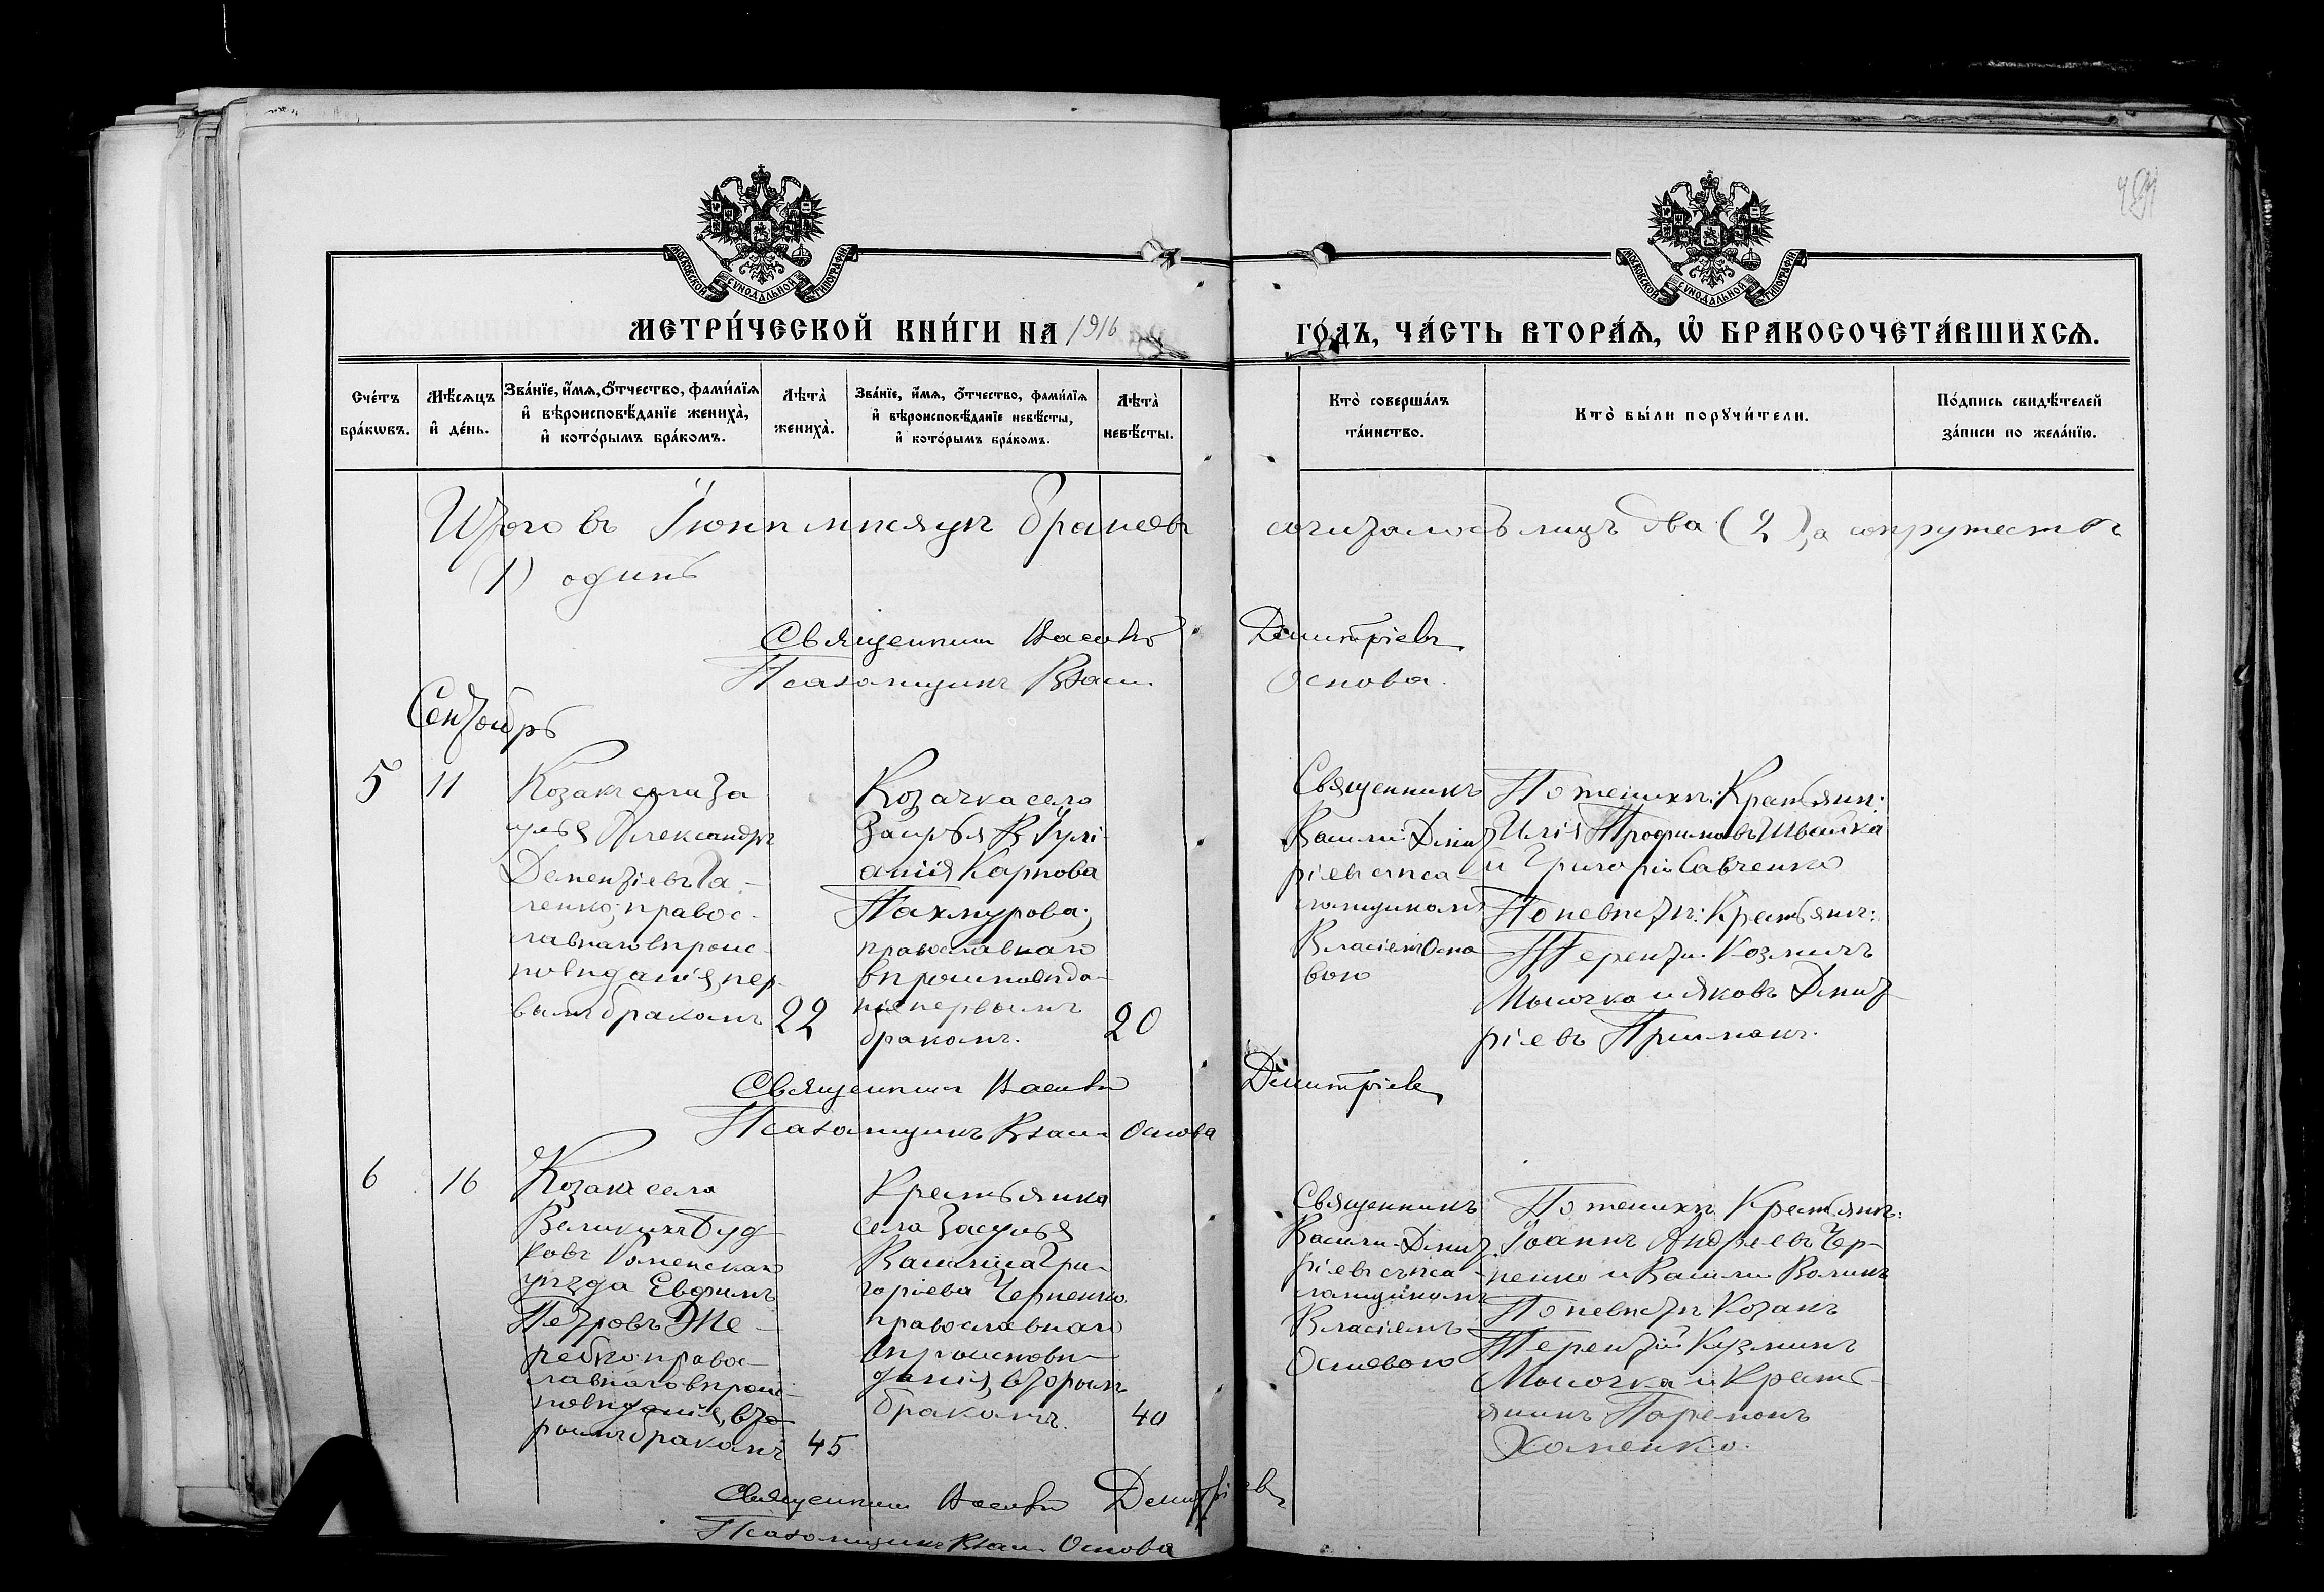 МОСКОВСКОЙ СѴНОДАЛЬНОЙ ТИПОГРАФІИ
МЕТРИ́ЧЕСКОЙ КНИ́ГИ НА 1916
Сче́тъ бра́кωвъ.
Мѣ́сяцъ и҆ де́нь.
Зва́нїе, и҆́мѧ, ѻ҆́тчество, фами́лїѧ
и҆ вѣроисповѣ́данїе жениха̀,
и҆ кото́рымъ бра́комъ.
Лѣта̀ жениха̀.
Зва́нїе, и҆́мѧ, ѻ҆́тчество, фами́лїѧ
и҆ вѣроисповѣ́данїе невѣ́сты,
и҆ кото́рымъ бра́комъ.
Лѣта̀ невѣ́сты.
МОСКОВСКОЙ СѴНОДАЛЬНОЙ ТИПОГРАФІИ
ГО́ДЪ, ЧА́СТЬ ВТОРА́Ѧ, Ѽ БРАКОСОЧЕТА́ВШИХСѦ.
Кто̀ соверша́лъ
та́инство.
Кто̀ бы́ли порꙋчи́тели.
По́дпись свидѣ́телей
за́писи по жела́нїю.
Итого въ Іюнѣ мѣсяцѣ бракомъ сочеталось лицъ два (2), а супружествъ
(1) одинъ
Священникъ Василій Димитріевъ
Псаломщикъ Власій Основа.
Сентябрь
5
11
Козакъ села За
сулья Александръ
Дементіевъ Га-
ленко; правос-
лавнаго вѣроис-
повѣданія, пер-
вымъ бракомъ
22
Козачка села
Засулья Іулі-
анія Карпова
Пахмурова;
православнаго
вѣроисповѣда-
нія первымъ
бракомъ.
20
Священникъ
Василій Димит
ріевъ съ пса-
ломщикомъ
Власіемъ Осно
вою
По женихѣ: Крестьянин:
Илія Трофимовъ Швайка
и Григорій Савченко
По невѣстѣ: Крестьянин:
Терентій Козмичъ
Мылочка и Яковъ Димит-
ріевъ Приймакъ.
Священникъ Василій Димитріевъ
Псаломщикъ Власій Основа
6
16
Козакъ села
Великихъ Буд
ковъ Роменскаго
уѣзда Евфимъ
Петровъ Же-
ребко; правос-
лавнаго вѣроис-
повѣданія, вто-
рымъ бракомъ
45
Крестьянка
села Засулья
Василиса Гри-
горіева Черненко.
православнаго
вѣроисповѣ-
данія, вторымъ
бракомъ.
40
Священникъ
Василій Димит
ріевъ съ пса-
ломщикомъ
Власіемъ
Основою
По женихѣ Крестьянин:
Іоаннъ Андреевъ Чер-
ненко и Василій Воликъ
По невѣстѣ Козакъ
Терентій Кузминъ
Мылочка и Кресть-
янинъ Парамонъ
Хоменко.
Священникъ Василій Димитріевъ
Псаломщикъ Власій Основа